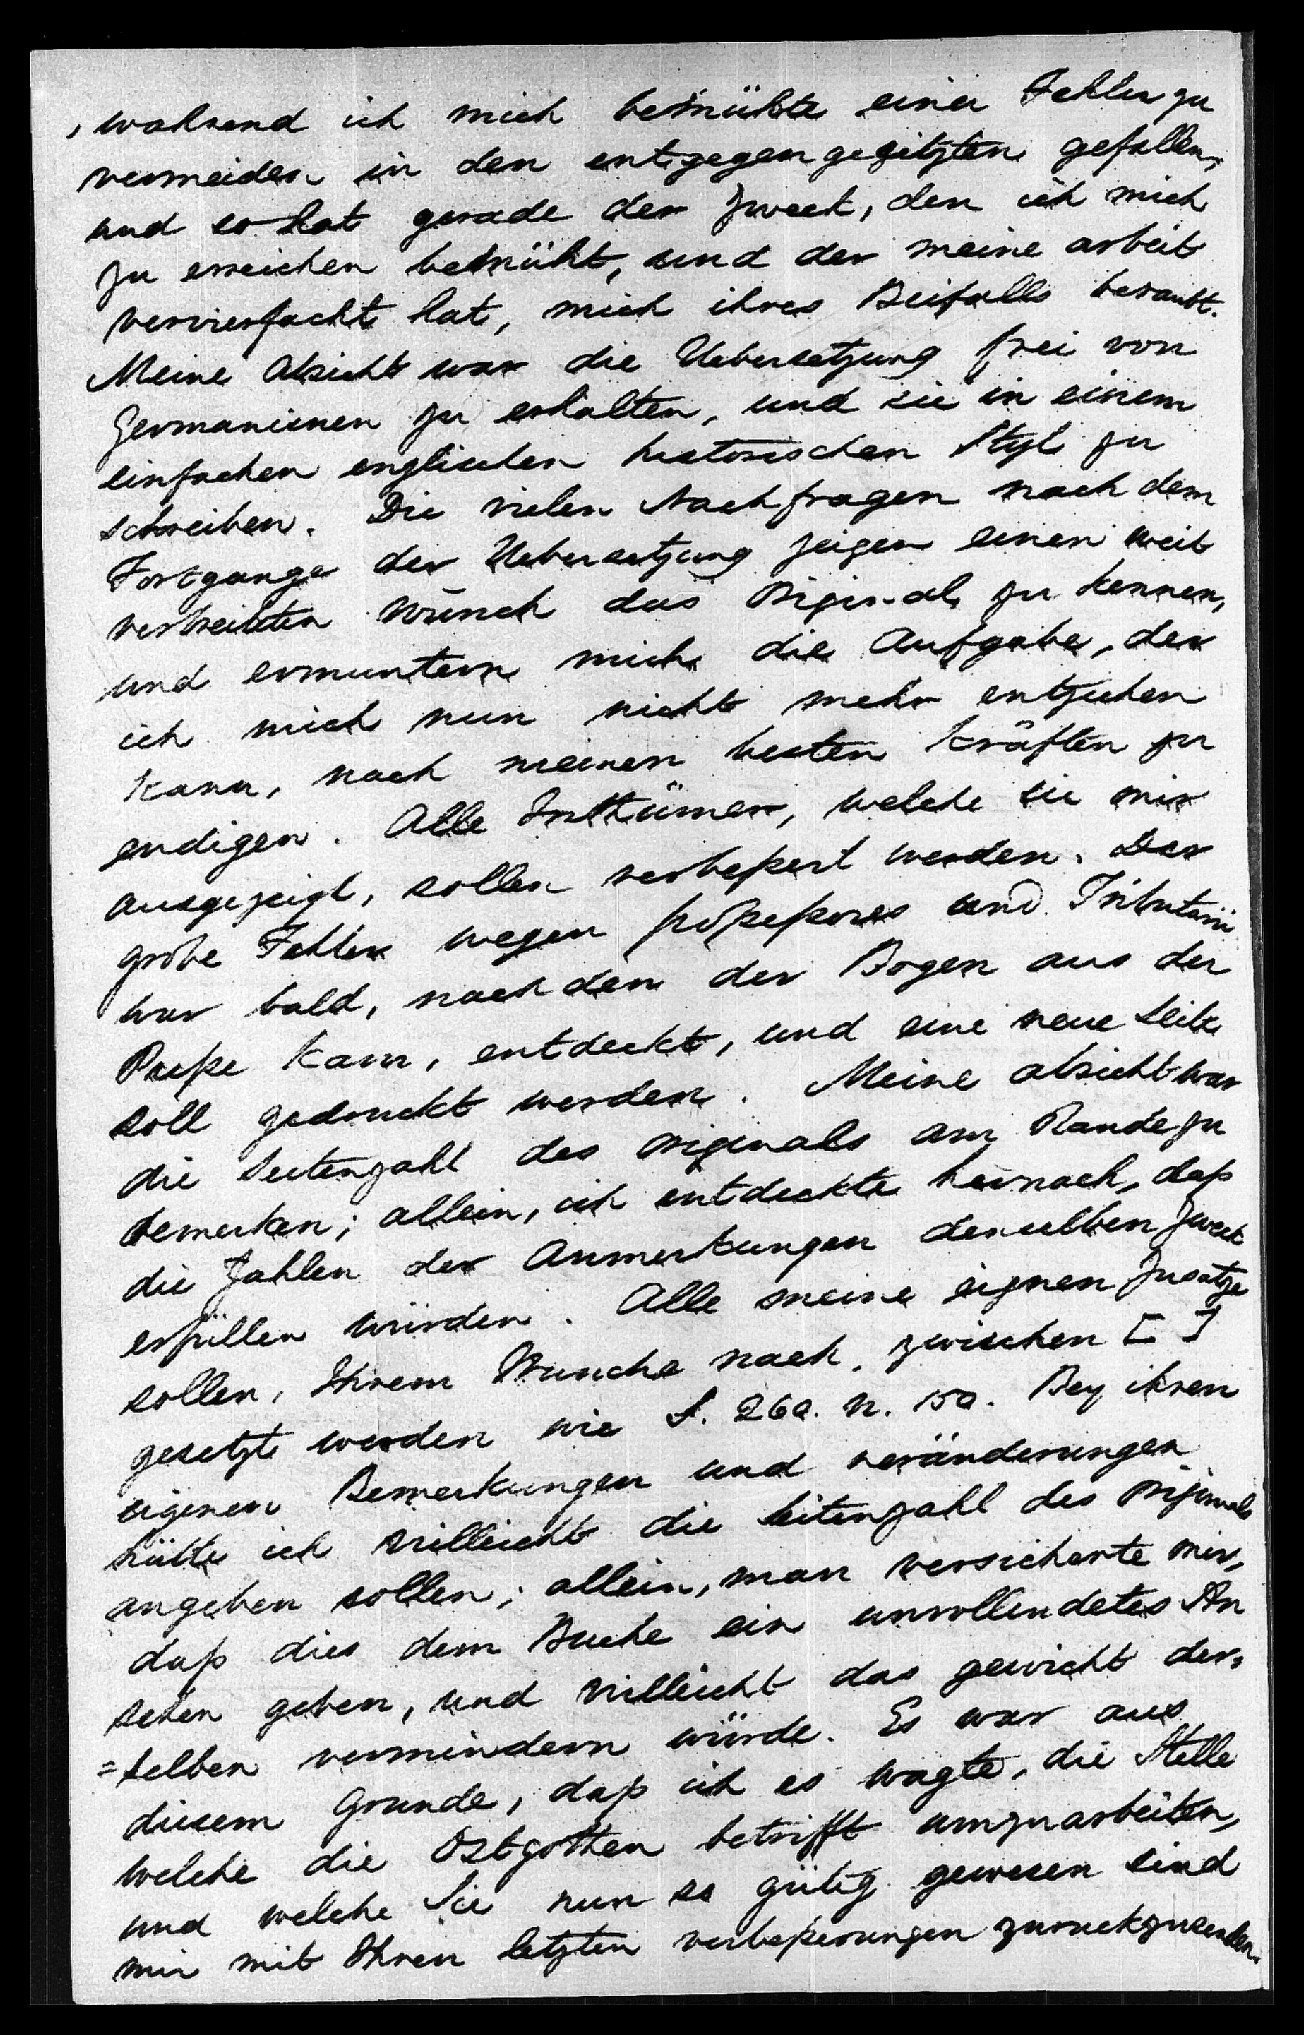 , wahrend ich mich bemühte einen Fehler zu
vermeiden in den entgegengesitzten gefallen,
und so hat gerade der Zweck, den ich mich
zu erreichen bemüht, und der meine arbeit
vervierfacht hat, mich ihres Beifalls beraubt.
Meine Absicht war die Uebersetzung frei von
Germanismen zu erhalten, und sie in einem
einfachen englischen historischen Styl zu
schreiben. Die vielen Nachfragen nach dem
Fortgange der Uebersetzung zeigen einen weit
verbreiteten Wunsch das Original zu kennen,
und ermuntern mich die Aufgabe, der
ich mich nun nicht mehr entziehen
kann, nach meinen besten Kräften zu
endigen. Alle Irrthümer, welche sie mir
ausgezeigt, sollen verbeßert werden. Der
grobe Fehler wegen poßeßores und Tributarii
war bald, nachdem der Bogen aus der
Preße kam, entdeckt, und eine neue Seite
soll gedruckt werden. Meine absicht war
die Seitenzahl des originals am Rande zu
bemerken; allein, ich entdeckte hernach, daß
die Zahlen der Anmerkungen denselben Zweck
erfüllen würden. Alle meine eignen Zusatze
sollen, Ihrem Wunche nach, zwischen [ ]
gesetzt werden wie S. 260. N. 150. Bey ihren
eigenen Bemerkungen und veränderungen
hätte ich villeicht die Seitenzahl des originals
angeben sollen; allein, man versicherte mir,
daß dies dem Buche ein unvollendetes An
sehen geben, und villeicht das gewicht der=
=selben vermindern würde. Es war aus
diesem Grunde, daß ich es wagte, die Stelle
welche die Ostgothen betrifft umzuarbeiten,
und welche Sie nun so gütig gewesen sind
mir mit Ihren letzten verbeßerungen zurückzusenden.